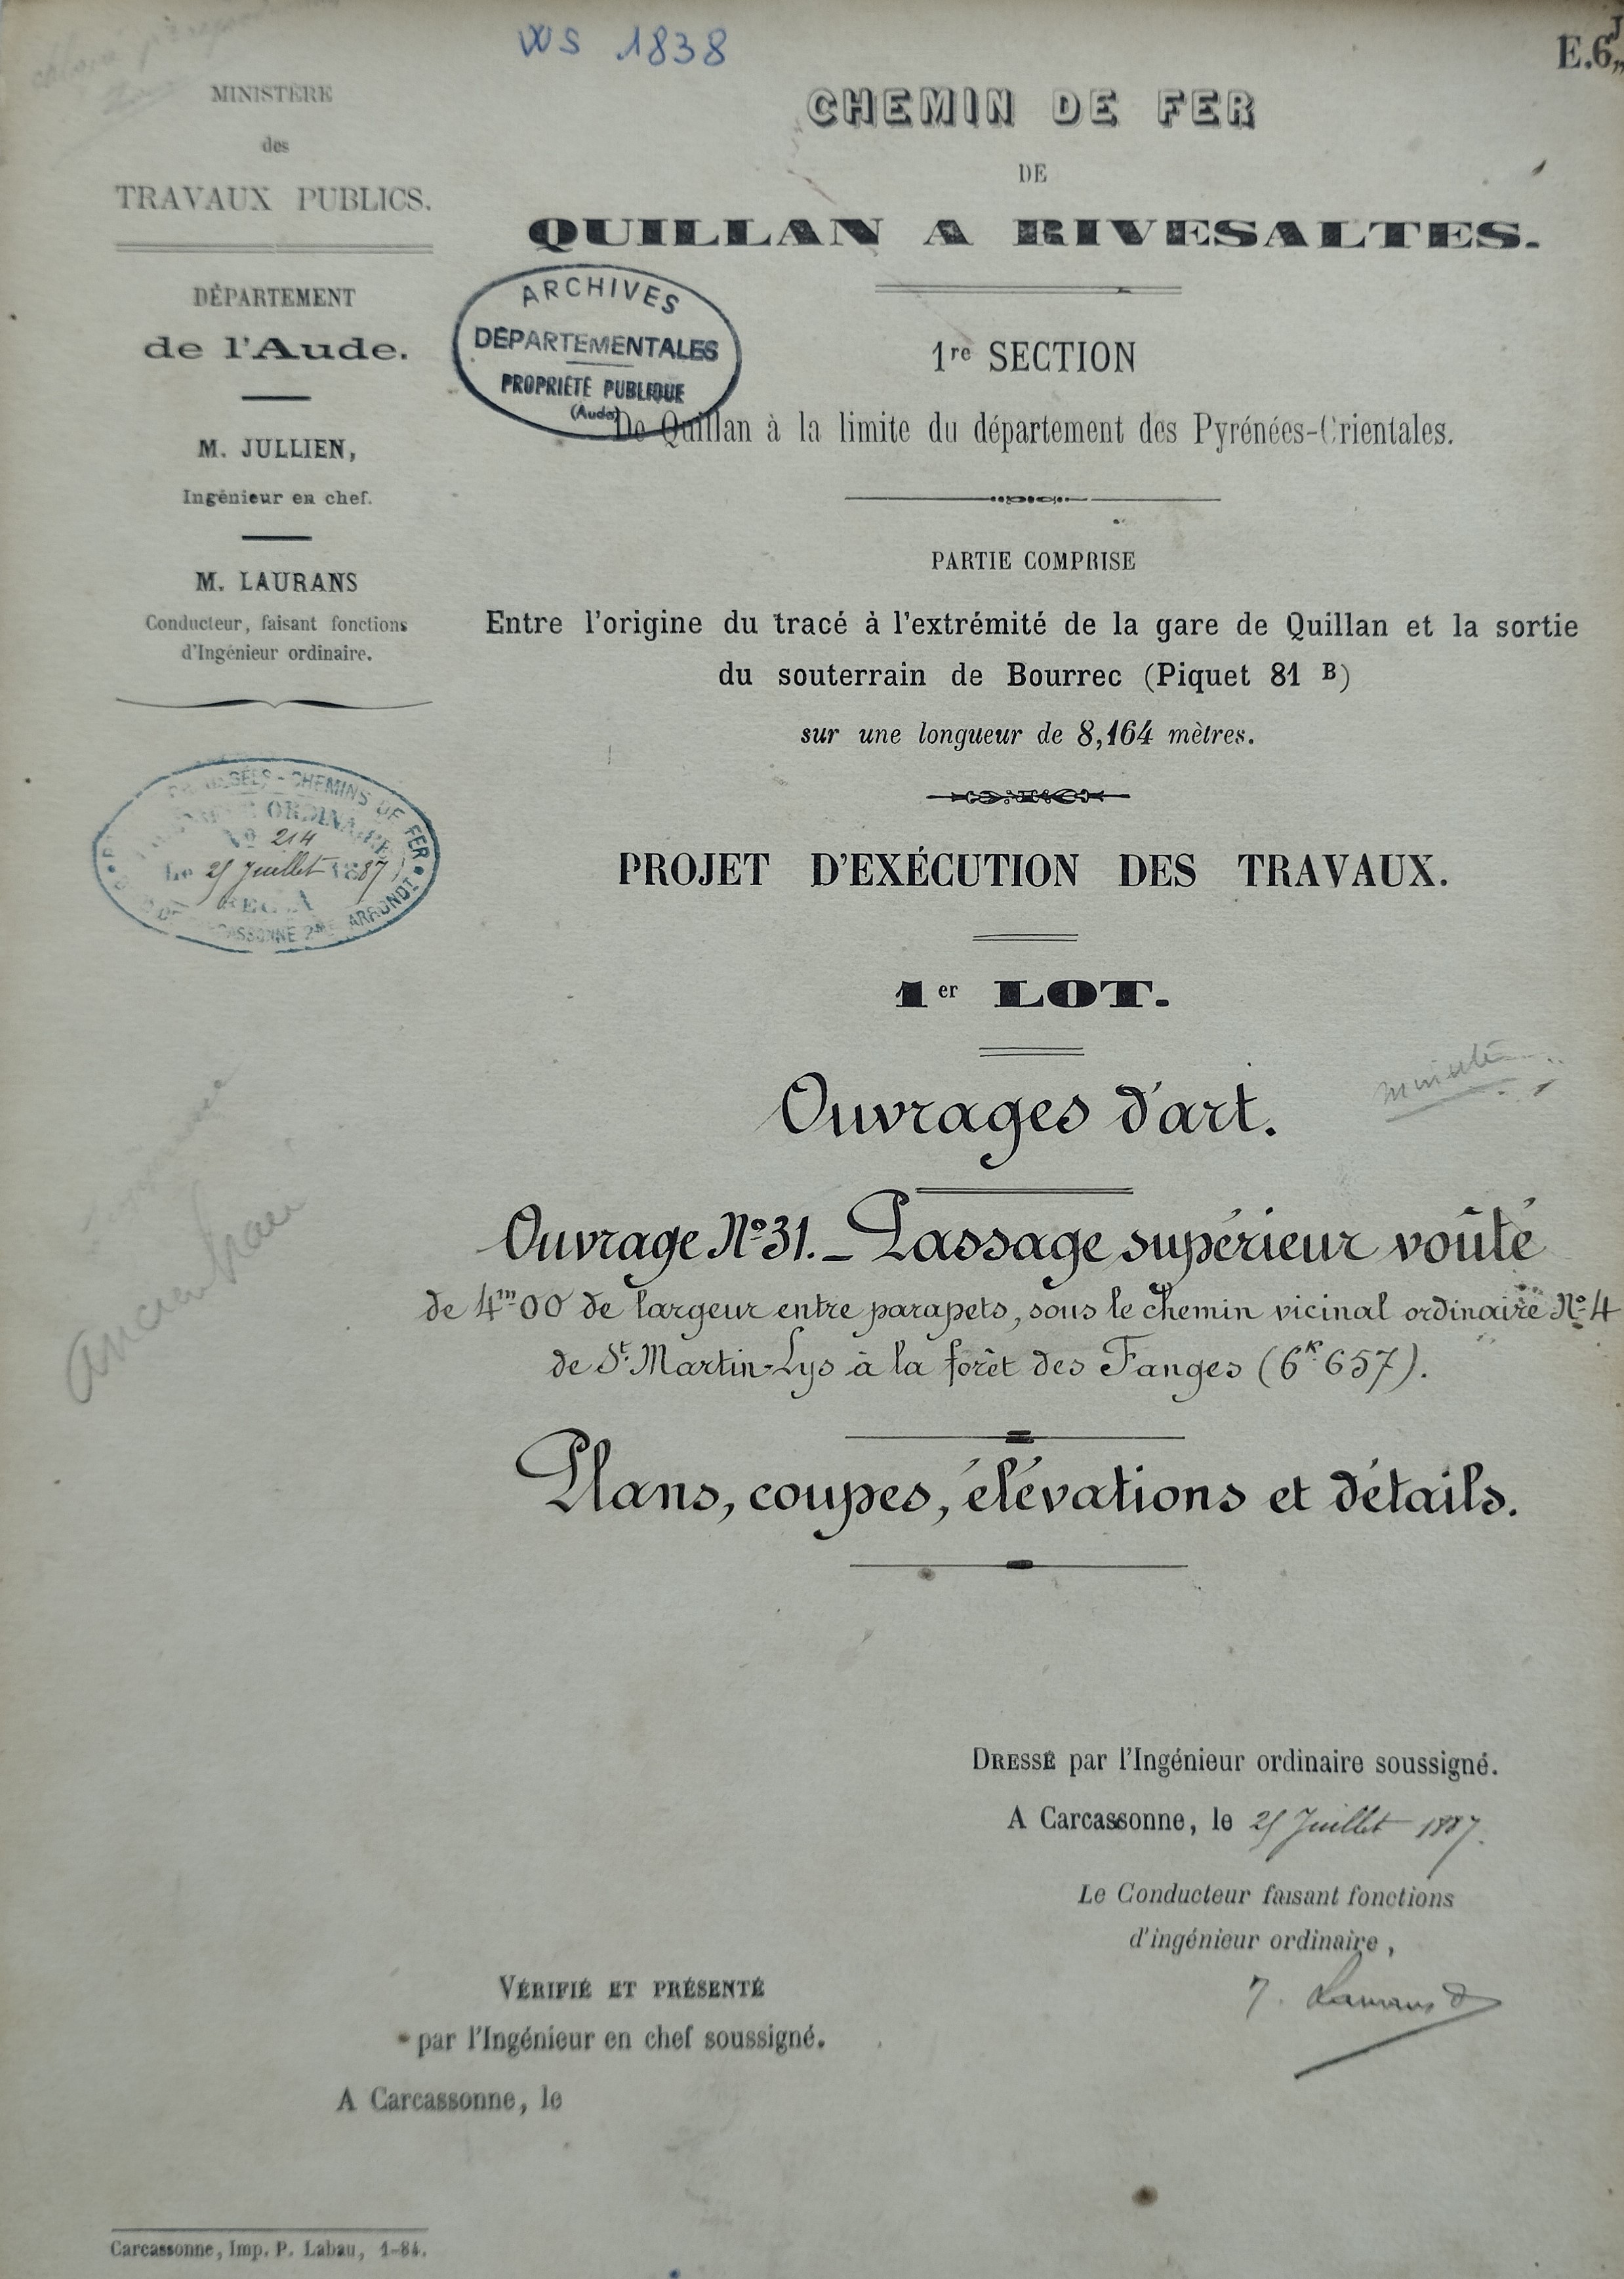 WS 1838
E.6
MINISTÈRE
des
TRAVAUX PUBLICS.
DÉPARTEMENT
de l'Aude.
M. JULLIEN,
Ingénieur en chef.
M. LAURANS
Conducteur, faisant fonctions
d'Ingénieur ordinaire.
CHEMINS DE FER
ORDINAIRE
No 214
Le 25 Juillet 1887
2me ARRONDt
CHEMIN DE FER
DE
QUILLAN A RIVESALTES.
ARCHIVES
DÉPARTEMENTALES
PROPRIÉTÉ PUBLIQUE
(Aude)
1re SECTION
De Quillan à la limite du département des Pyrénées-Orientales.
PARTIE COMPRISE
Entre l'origine du tracé à l'extrémité de la gare de Quillan et la sortie
du souterrain de Bourrec (Piquet 81 B)
sur une longueur de 8,164 mètres.
PROJET D'EXÉCUTION DES TRAVAUX.
1er LOT.
Ouvrages d'art.
Ouvrage No 31. _ Passage supérieur voûté
de 4m00 de largeur entre parapets, sous le chemin vicinal ordinaire No 4
de St. Martin-Lys à la forêt des Fanges (6k 657).
Plans, coupes, élévations et détails.
DRESSÉ par l'Ingénieur ordinaire soussigné.
A Carcassonne, le 25 Juillet 1887.
Le Conducteur faisant fonctions
d'ingénieur ordinaire,
J. Laurans
VÉRIFIÉ ET PRÉSENTÉ
par l'Ingénieur en chef soussigné.
A Carcassonne, le
Carcassonne, Imp. P. Labau, 1-84.